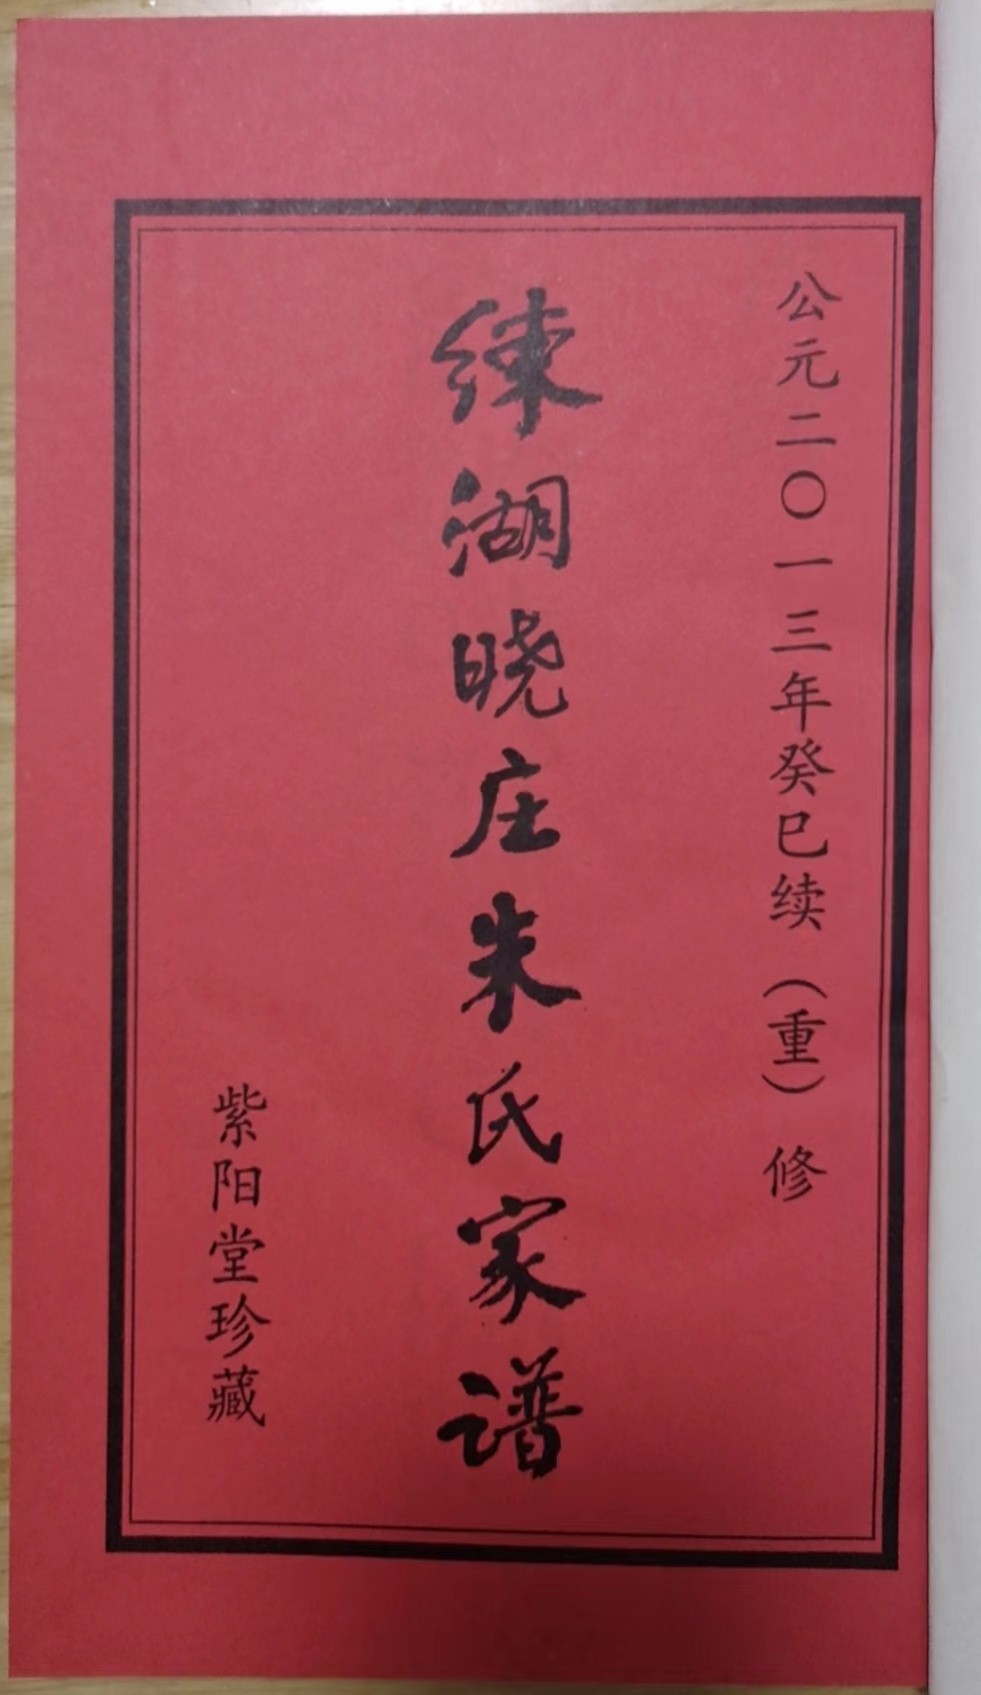 公元二〇一三年癸巳续（重）修
练湖晓庄朱氏家谱
紫阳堂珍藏